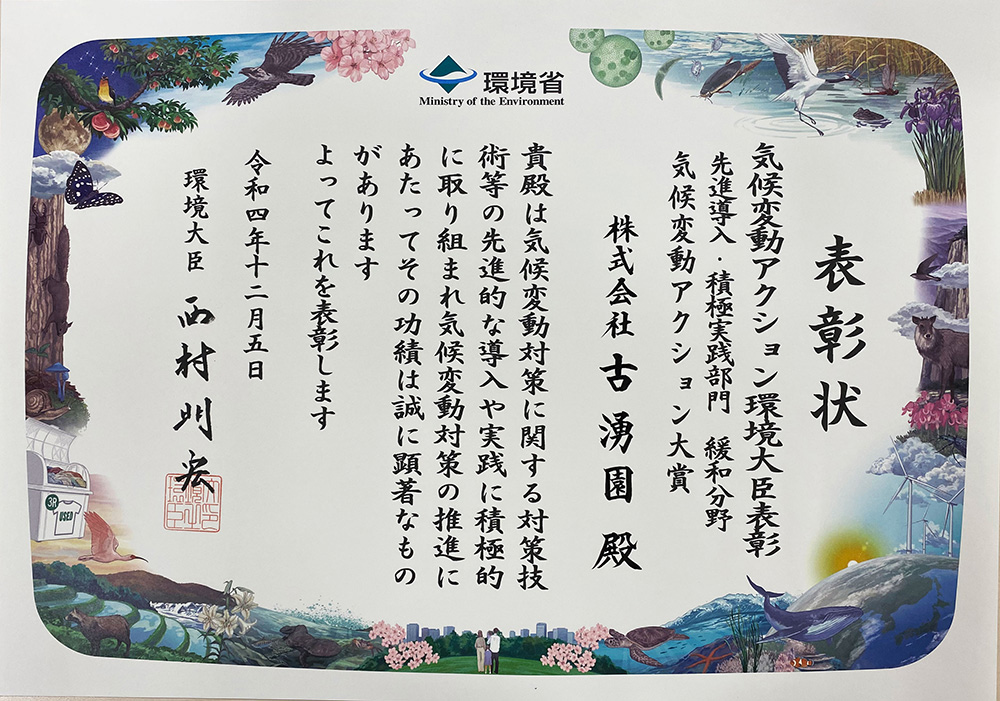 環境省
Ministry of the Environment
表彰状
気候変動アクション環境大臣表彰
先進導入・積極実践部門 緩和分野
気候変動アクション大賞
株式会社 古湧園 殿
貴殿は気候変動対策に関する対策技
術等の先進的な導入や実践に積極的
に取り組まれ気候変動対策の推進に
あたってその功績は誠に顕著なもの
があります
よってこれを表彰します
令和四年十二月五日
環境大臣 西村明宏
3R
USED